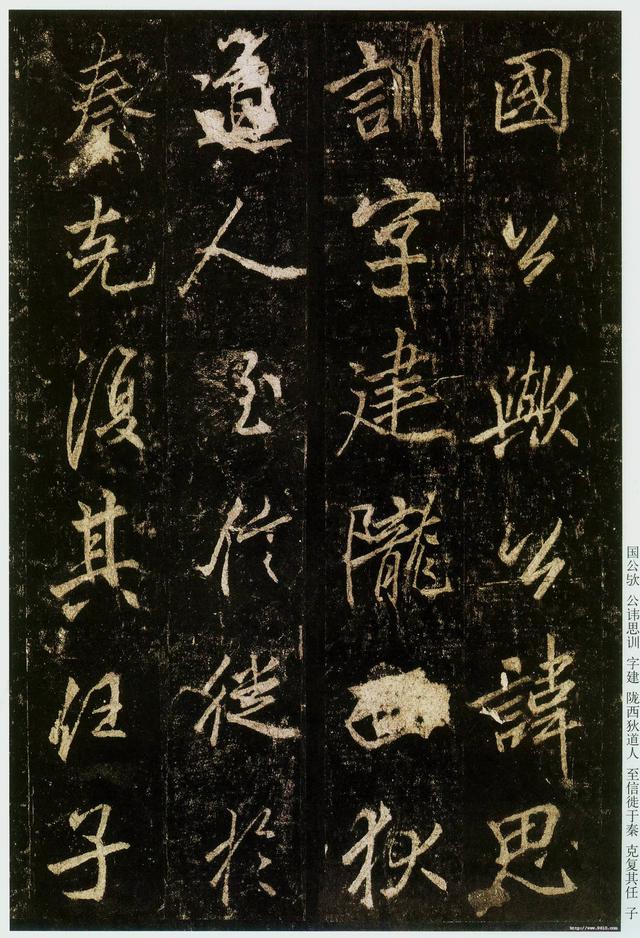 國公歟公諱思
訓字建隴西狄
道人至信徙於
秦克復其任子
国公欤 公讳思训 字建 陇西狄道人 至信徙于秦 克复其任 子
http://www.9610.com